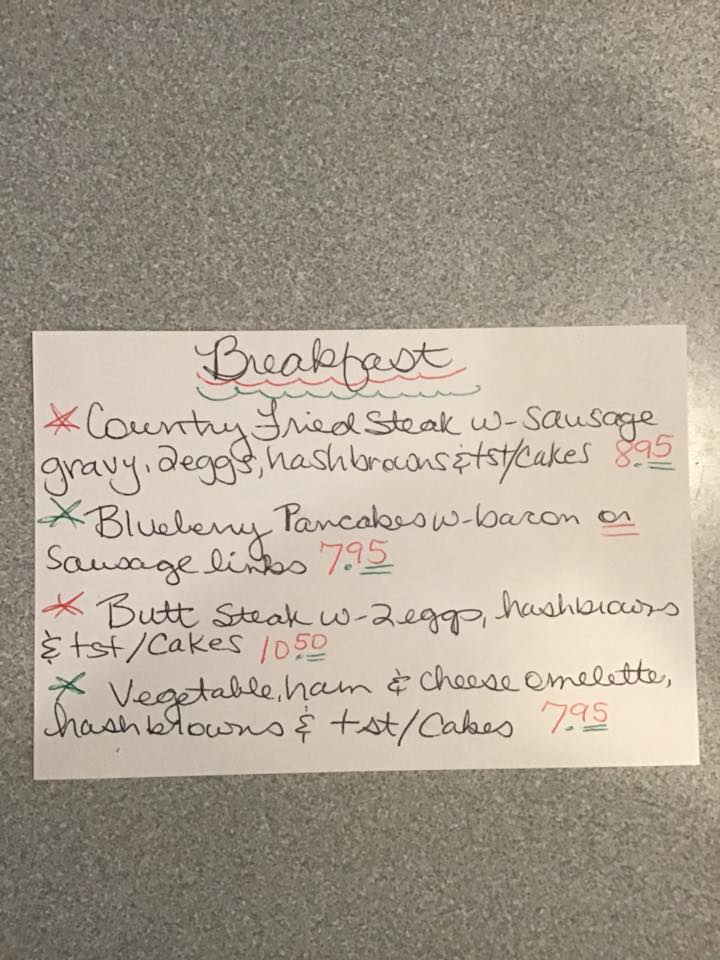 Breakfast
* Country Fried Steak w-sausage
gravy, 2eggs, hashbrowns & tst/cakes 8.95
* Blueberry Pancakes w-bacon or
Sausage links 7.95
* Butt Steak w-2eggs, hashbrowns
& tst/Cakes 10.50
* Vegetable, ham & cheese omelette,
hashbrowns & tst/Cakes 7.95